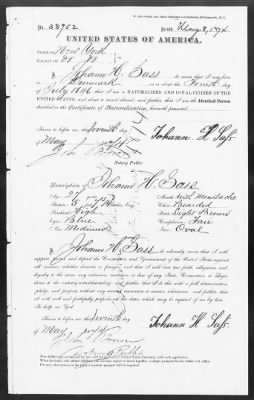 No 38752 Issued May 8, 1874
UNITED STATES OF AMERICA.
STATE OF New York
COUNTY OF
I, Johann H. Sass do swear that I was born
in Denmark on or about the Fourth day
of July 1846 that I am a NATURALIZED AND LOYAL CITIZEN OF THE
UNITED STATES and about to travel abroad; and further, that I am the Identical Person
described in the Certificate of Naturalization, herewith presented.
Sworn to before me this Seventh day
of May 1874
Johann H Sass
Notary Public.
Description of Johann H. Sass
Age: 27 years
Mouth: with mustache
Stature: 5
Chin: Bearded
Forehead: High
Hair: Light Brown
Eyes: Blue
Complexion: Fair
Nose: Medium
Face: Oval
I, Johann H. Sass do solemnly swear that I will
support, protect and defend the Constitution and Government of the United States against
all enemies, whether domestic or foreign; and that I will bear true faith, allegiance and
loyalty to the same, any ordinance, resolution or law of any State, Convention or Legis-
lature to the contrary notwithstanding; and further, that I do this with a full determination,
pledge and purpose, without any mental reservation or evasion whatsoever; and further, that
I will well and faithfully perform all the duties which may be required of me by law.
So help me God.
Sworn to before me this Seventh day
of May 1874
Johann H Sass
Notary Public